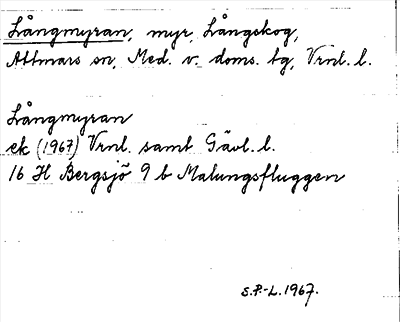 Långmyran, myr, Långskog,
Attmars sn, Med. v. doms. tg, Vrnl. l.
Långmyran
ek (1967) Vrnl. samt Gävl. l.
16 H Bergsjö 9 b Malungsfluggen
S.P.-L. 1967.